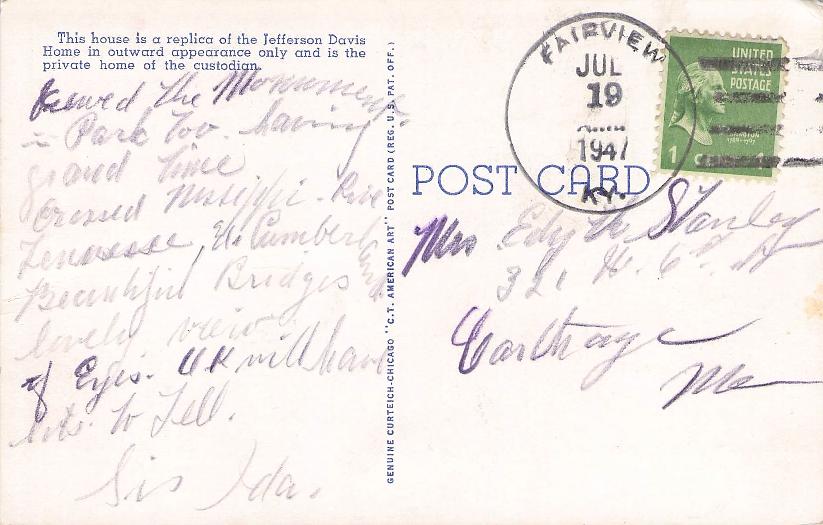 This house is a replica of the Jefferson Davis
Home in outward appearance only and is the
private home of the custodian.
the Monument
Park too. having
grand time
Crossed
Tennessee, & Cumberland
Beautiful Bridges
lovely view
of Eyes. will have
lots to Tell.
Sis Ida.
GENUINE CURTEICH-CHICAGO "C.T. AMERICAN ART" POST CARD (REG. U.S. PAT. OFF.)
FAIRVIEW
JUL
19
1947
KY.
UNITED
STATES
POSTAGE
1
POST CARD
Mrs Edyth Stanley
321 W. 6th St
Carthage
Mo